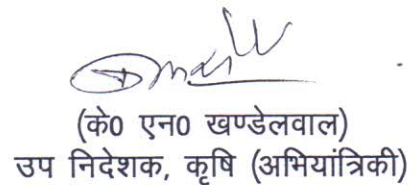 (के0 एन0 खण्डेलवाल)
उप निदेशक, कृषि (अभियांत्रिकी)